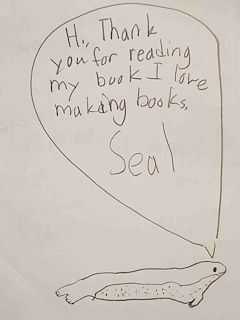 Hi, Thank
you for reading
my book I love
making books.
Seal